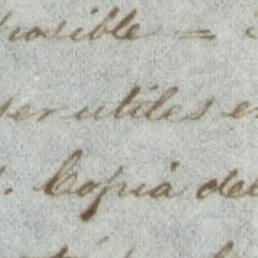 posible =
ser utiles en
Copia del